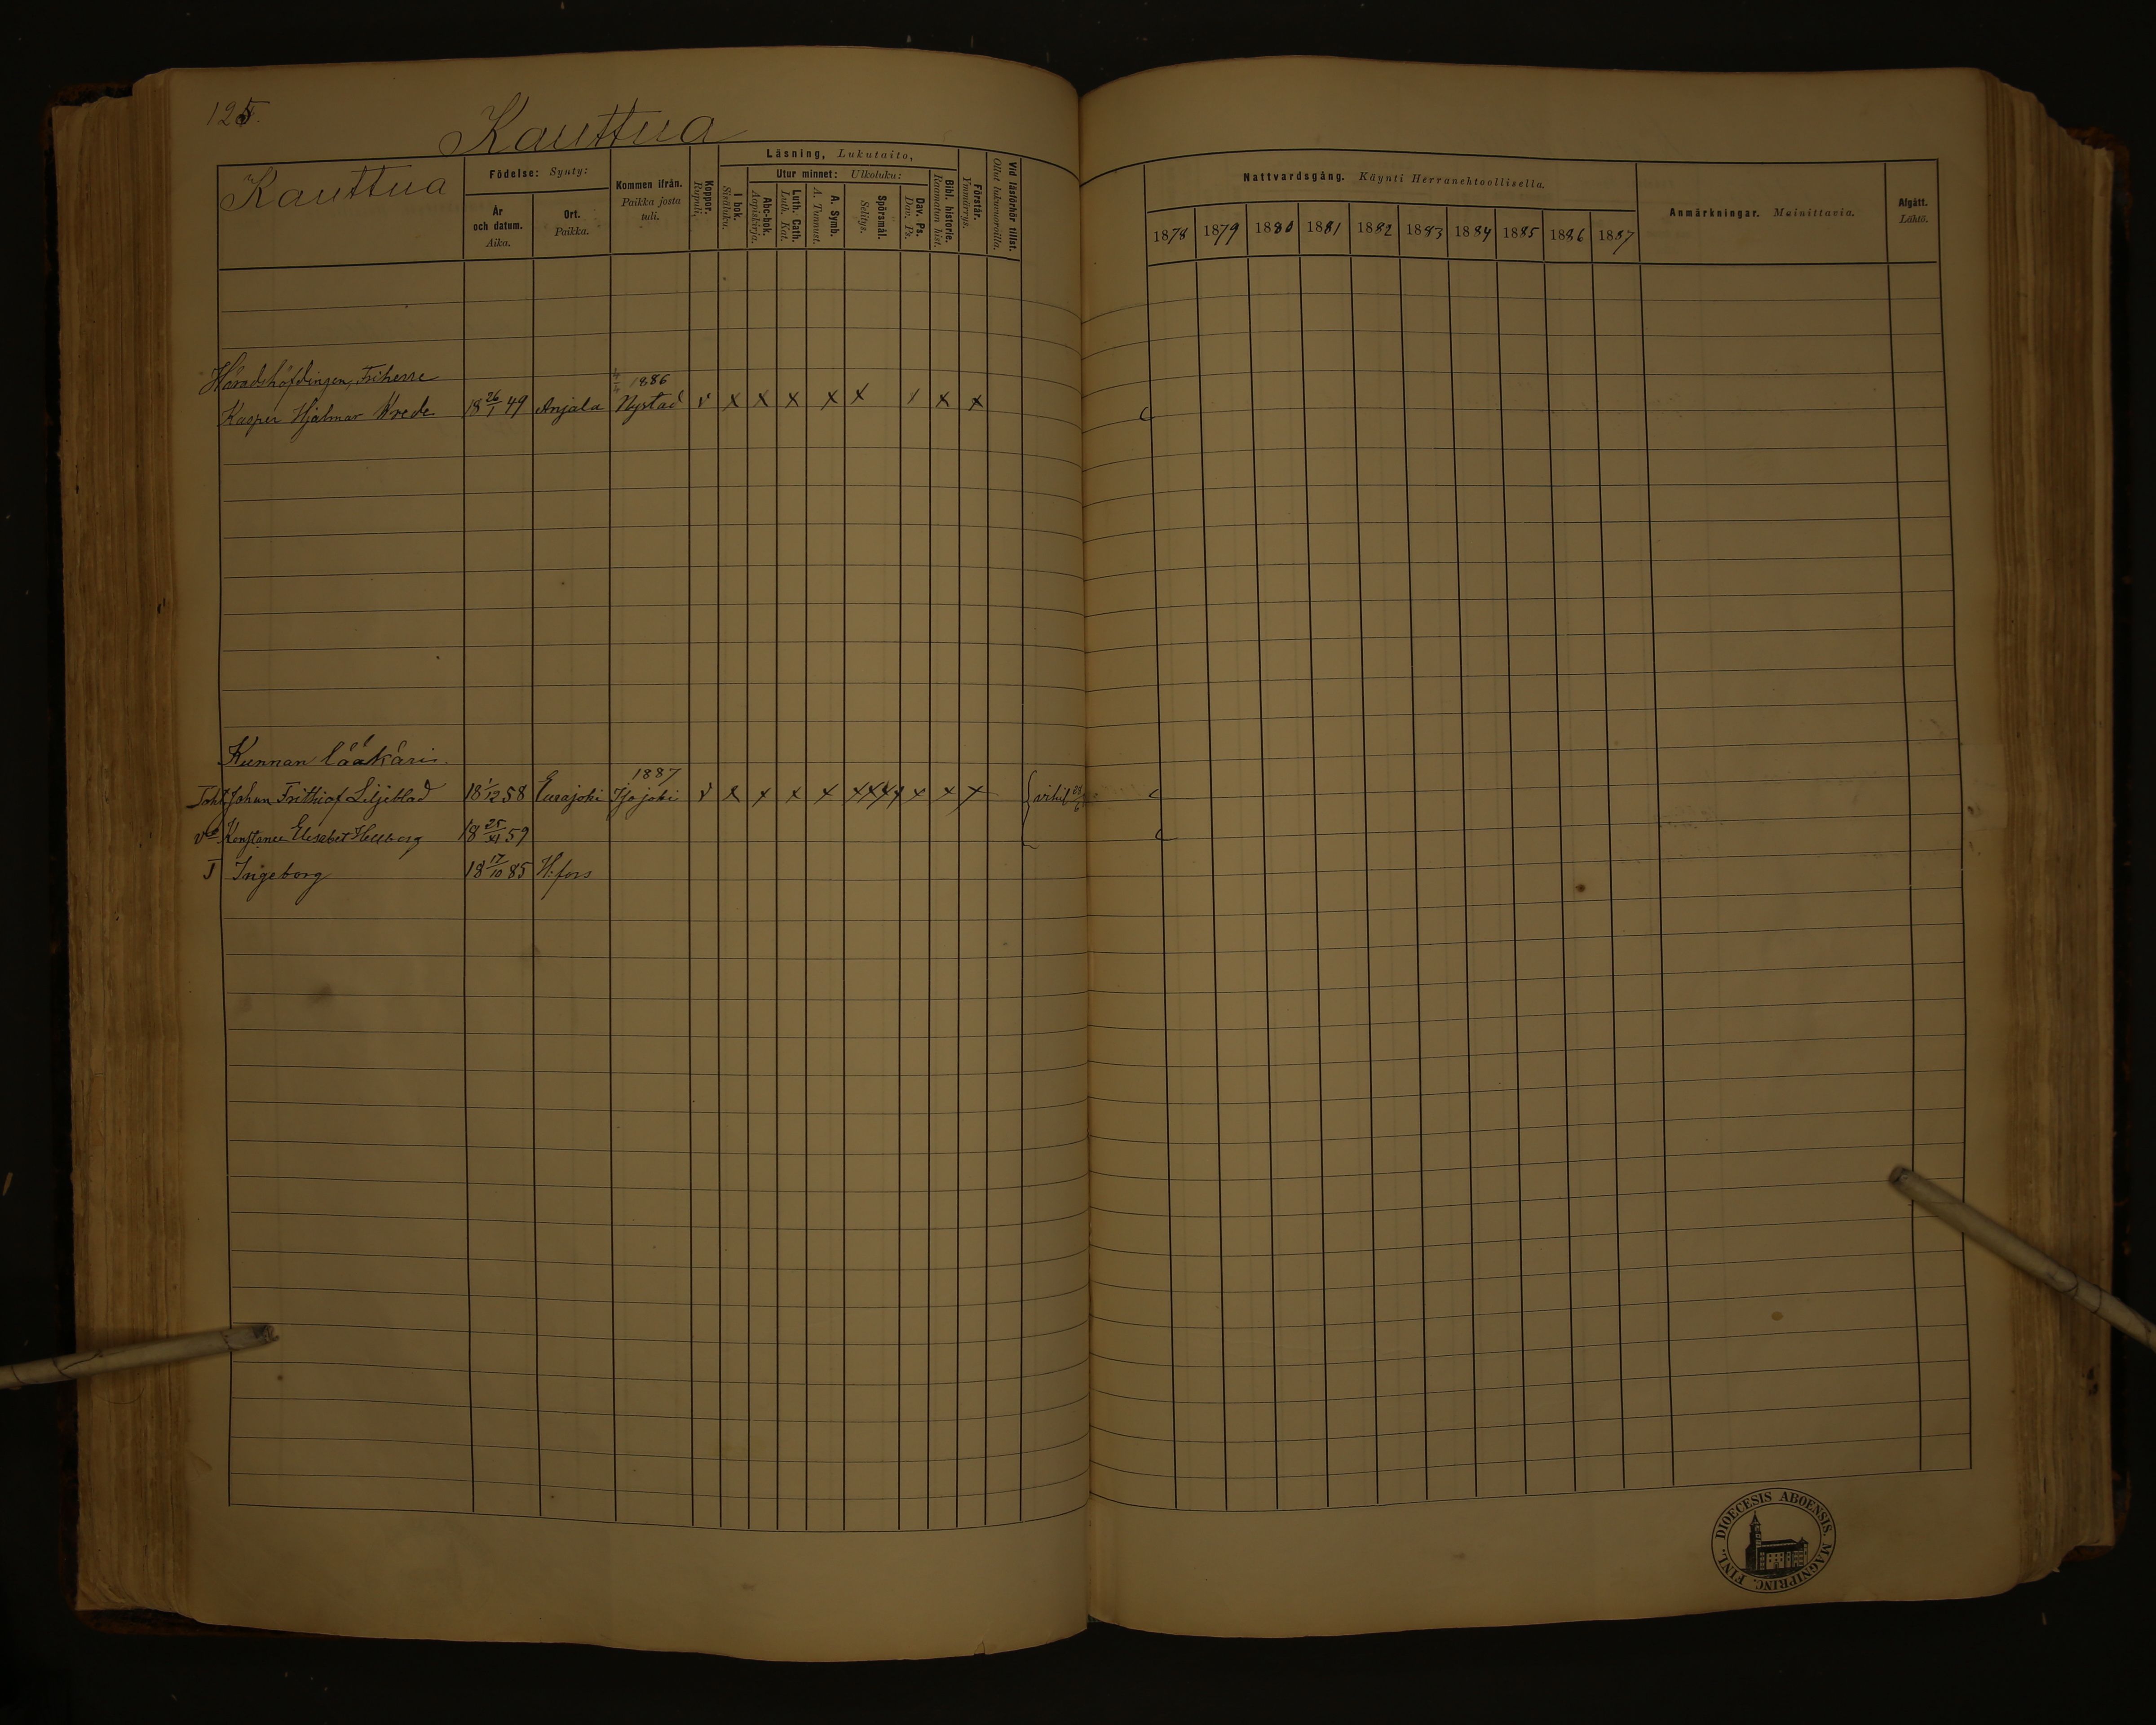 125.
Kauttua
Kauttua
Födelse: Synty:
År och datum. Aika.
Ort. Paikka.
Kommen ifrån. Paikka josta tuli.
Koppor. Rupuli.
Läsning, Lukutaito,
I bok. Sisäluku.
Utur minnet: Ulkoluku:
Abc-bok. Aapiskirja.
Luth. Cath. Luth. Kat.
A. Symb. A. Tunnust.
Spörsmål. Selitys.
Dav. Ps. Dav. Ps.
Bibl. historie. Raamatun hist.
Förstår. Ymmärrys.
Vid läsförhör tillst. Ollut lukuvuoroilla.
Nattvardsgång. Käynti Herranehtoollisella.
1878 1879 1880 1881 1882 1883 1884 1885 1886 1887
Anmärkningar. Mainittavia.
Afgått. Lähtö.
Häradshöfdingen, Friherre 1886
Kasper Hjalmar Wrede 18 26/1 49 Anjala Nystad v x x x x x / x x
Kunnan lääkäri. 1887
Joht Johan Frithiof Liljeblad 18 1/12 58 Eurajoki v x x x x x x x x x x x
vo Konstance Elisabet Hellberg 18 25/XI 59
T Ingeborg 18 17/10 85 H:fors
FINL. DIOECESIS ABOENSIS. MAGNIPRINC.